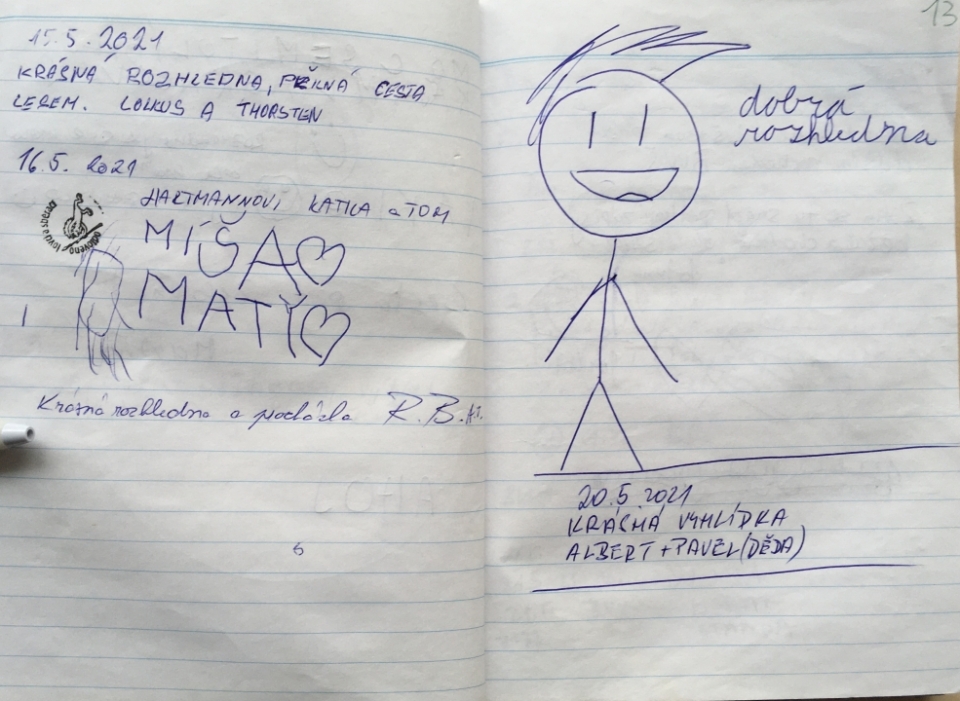 15.5.2021
KRÁSNÁ ROZHLEDNA, PĚKNÁ CESTA
LESEM. LOLKUS A THORSTEN
16.5. 2021
HARTMANNOVI KATKA a TOM
MÍŠA
MATÝ
Krásná rozhledna a procházka R.B.
13
dobrá
rozhledna
20.5.2021
KRÁSNÁ VYHLÍDKA
ALBERT + PAVEL (DĚDA)